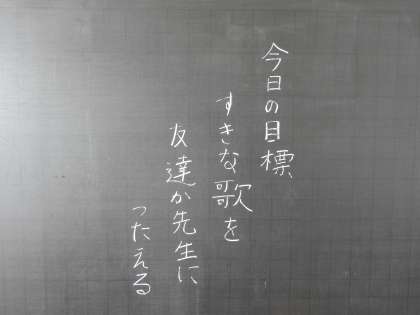 今日の目標、
すきな歌を
友達か先生に
つたえる